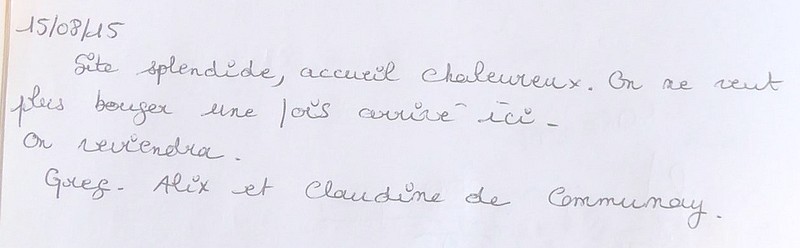 15/08/15
Site splendide, accueil chaleureux. On ne veut
plus bouger une fois arrivé ici -
On reviendra.
Greg. Alix et Claudine de Communay.